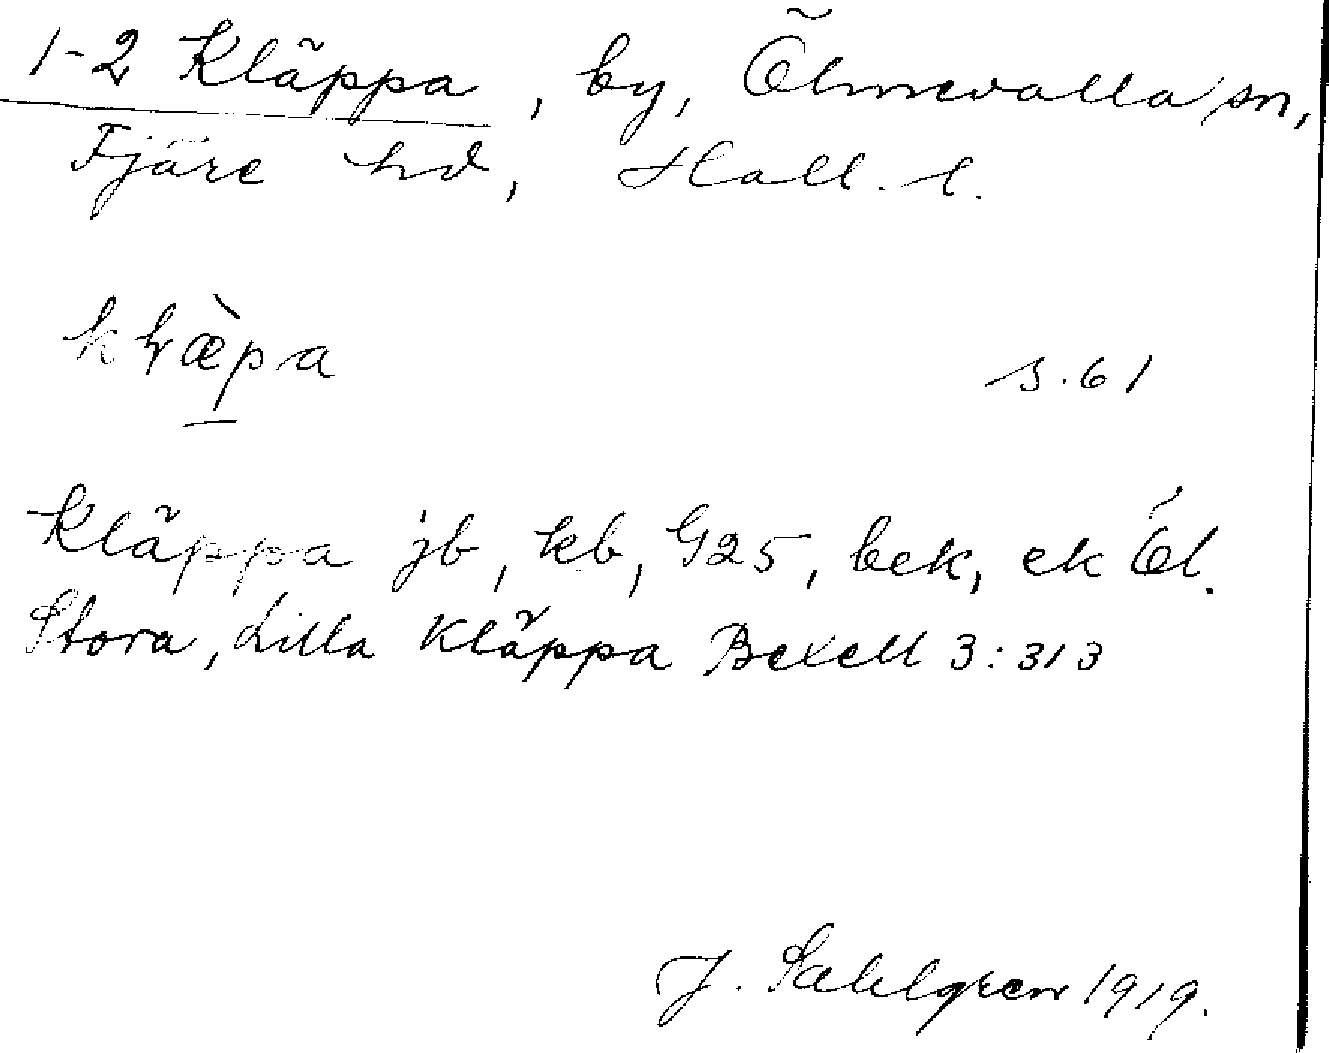 1-2 Kläppa, by, Ölmevalla sn,
Fjäre hd, Hall. l.
s. 61
Kläppa jb, kb, G25, bek, ek Öl.
Stora, Lilla Kläppa Bexell 3:313
J. Sahlgren 1919.